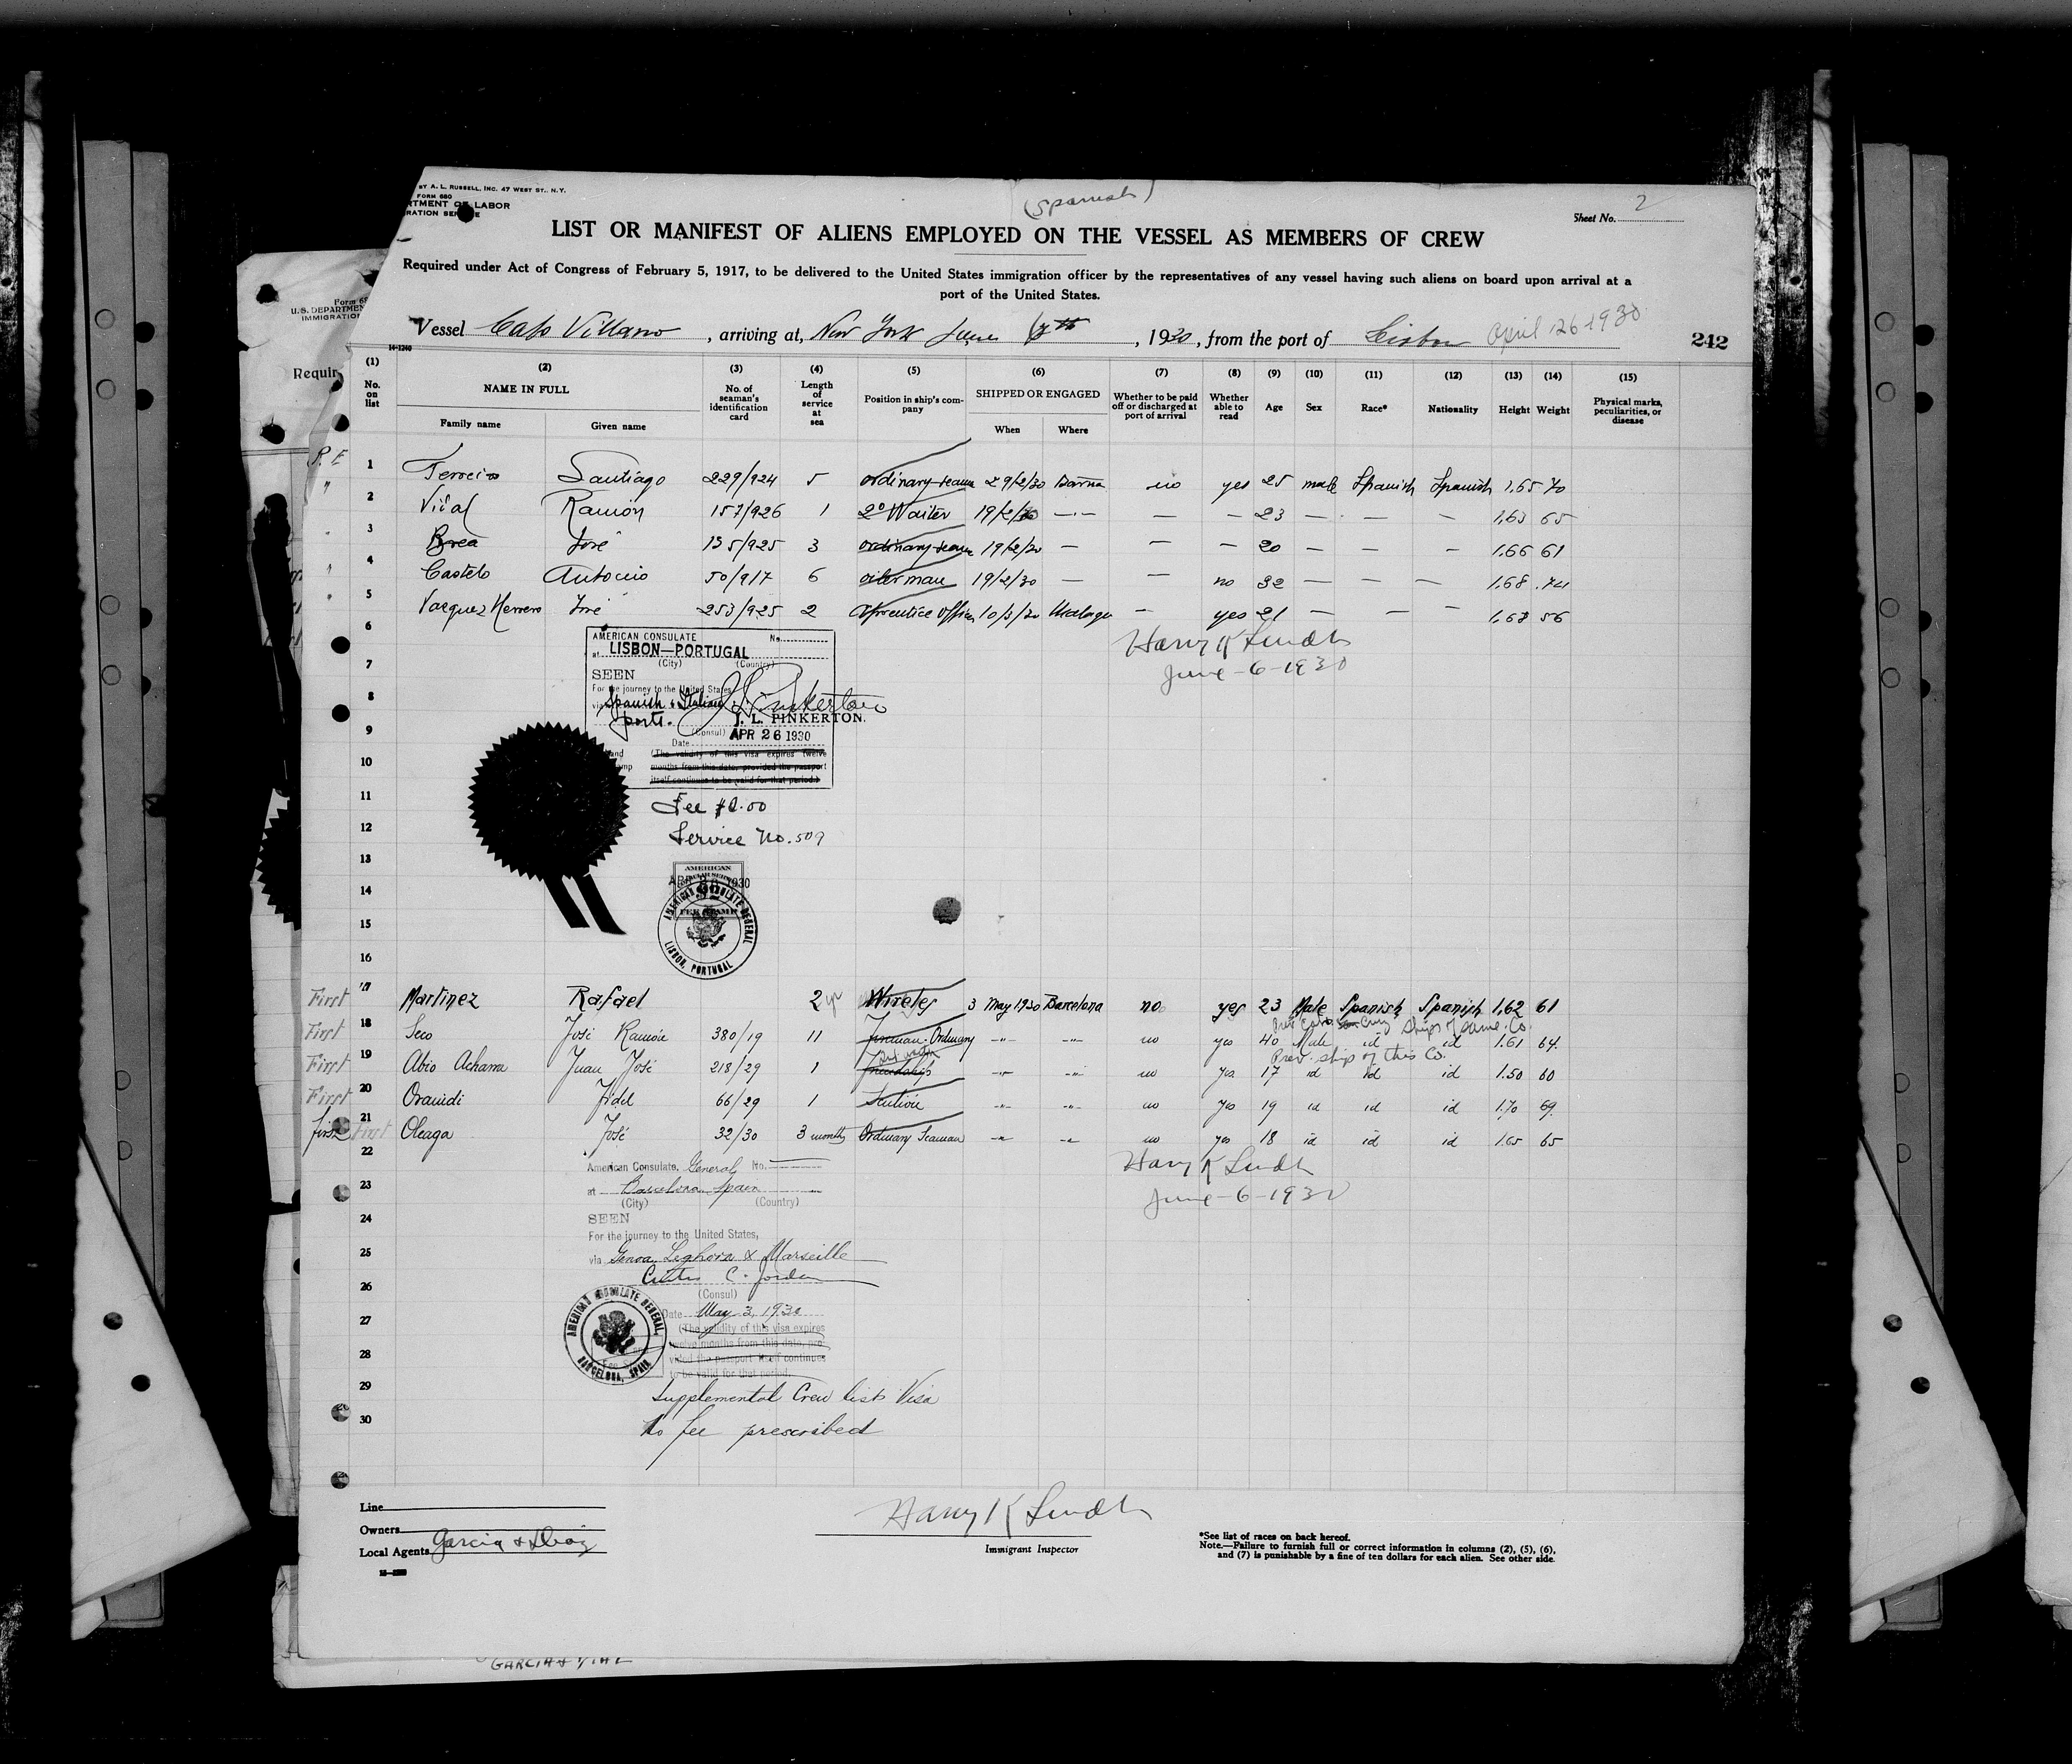 BY A. L. RUSSELL, INC. 47 WEST ST., N.Y.
FORM 680
RTMENT OF LABOR
RATION SERVICE
(Spanish)
Sheet No. 2
LIST OR MANIFEST OF ALIENS EMPLOYED ON THE VESSEL AS MEMBERS OF CREW
Required under Act of Congress of February 5, 1917, to be delivered to the United States immigration officer by the representatives of any vessel having such aliens on board upon arrival at a
port of the United States.
Form 68
U.S. DEPARTMEN
IMMIGRATIO
Requir
Vessel Cabo Villano, arriving at, New York June 6th, 1930, from the port of Lisbon April 26-1930
242
14-1240
(1) No. on list
(2) NAME IN FULL
Family name Given name
(3) No. of seaman's identification card
(4) Length of service at sea
(5) Position in ship's company
(6) SHIPPED OR ENGAGED
When Where
(7) Whether to be paid off or discharged at port of arrival
(8) Whether able to read
(9) Age
(10) Sex
(11) Race*
(12) Nationality
(13) Height
(14) Weight
(15) Physical marks, peculiarities, or disease
P. E 1 Ferreiro Santiago 229/924 5 ordinary seaman 29/2/30 Barna no yes 25 male Spanish Spanish 1,65 70
" 2 Vidal Ramón 157/926 1 2º Waiter 19/2/30 —·— — — 23 — — — 1,63 65
" 3 Brea José 135/925 3 ordinary seaman 19/2/30 — — — 20 — — — 1,66 61
" 4 Castelo Antonio 50/917 6 oiler man 19/2/30 — — no 32 — — — 1,68 74
" 5 Vazquez Herrero José 253/925 2 Aprentice Officer 10/3/30 Malaga — yes 21 — — — 1,68 56
6
Harry K Lindh
June-6-1930
AMERICAN CONSULATE No.
at LISBON—PORTUGAL
(City) (Country)
7
SEEN
For the journey to the United States
8
via Spanish & Italian
ports.
J. L. Pinkerton
J. L. PINKERTON.
9
(Consul)
Date APR 26 1930
10
(The validity of this visa expires twelve
months from this date, provided the passport
itself continues to be valid for that period.)
11
Fee
12
Service No. 509
13
AMERICAN
1930
14
FEE STAMP
AMERICAN CONSULATE GENERAL
LISBON, PORTUGAL
15
16
First 17 Martinez Rafael 2 yr Wireles 3 May 1930 Barcelona no yes 23 Male Spanish Spanish 1,62 61
ships of same Co.
First 18 Seco José Ramón 380/19 11 Fireman Ordinary -"- -"- no yes 40 Male id id 1.61 64
Prev. ship of this Co.
First 19 Abio Acharra Juan José 218/29 1 -"- -"- no yes 17 id id id 1.50 60
First 20 Oraindi Fidel 66/29 1 -"- -"- no yes 19 id id id 1.70 69
first First 21 Oleaga José 32/30 3 months Ordinary Seaman -"- -"- no yes 18 id id id 1.65 65
22
Harry K Lindh
June-6-1930
American Consulate, General No.
23
at Barcelona Spain
(City) (Country)
24
SEEN
For the journey to the United States,
25
via Genoa, Leghorn & Marseille
Curtis C. Jordan
26
(Consul)
Date May 3, 1930
27
(The validity of this visa expires
twelve months from this date, pro-
28
vided the passport itself continues
to be valid for that period.
AMERICAN CONSULATE GENERAL
BARCELONA, SPAIN
29
Supplemental Crew list Visa
30
No fee prescribed
Line
Owners
Local Agents Garcia & Diaz
Harry K Lindh
Immigrant Inspector
*See list of races on back hereof.
Note.—Failure to furnish full or correct information in columns (2), (5), (6),
and (7) is punishable by a fine of ten dollars for each alien. See other side.